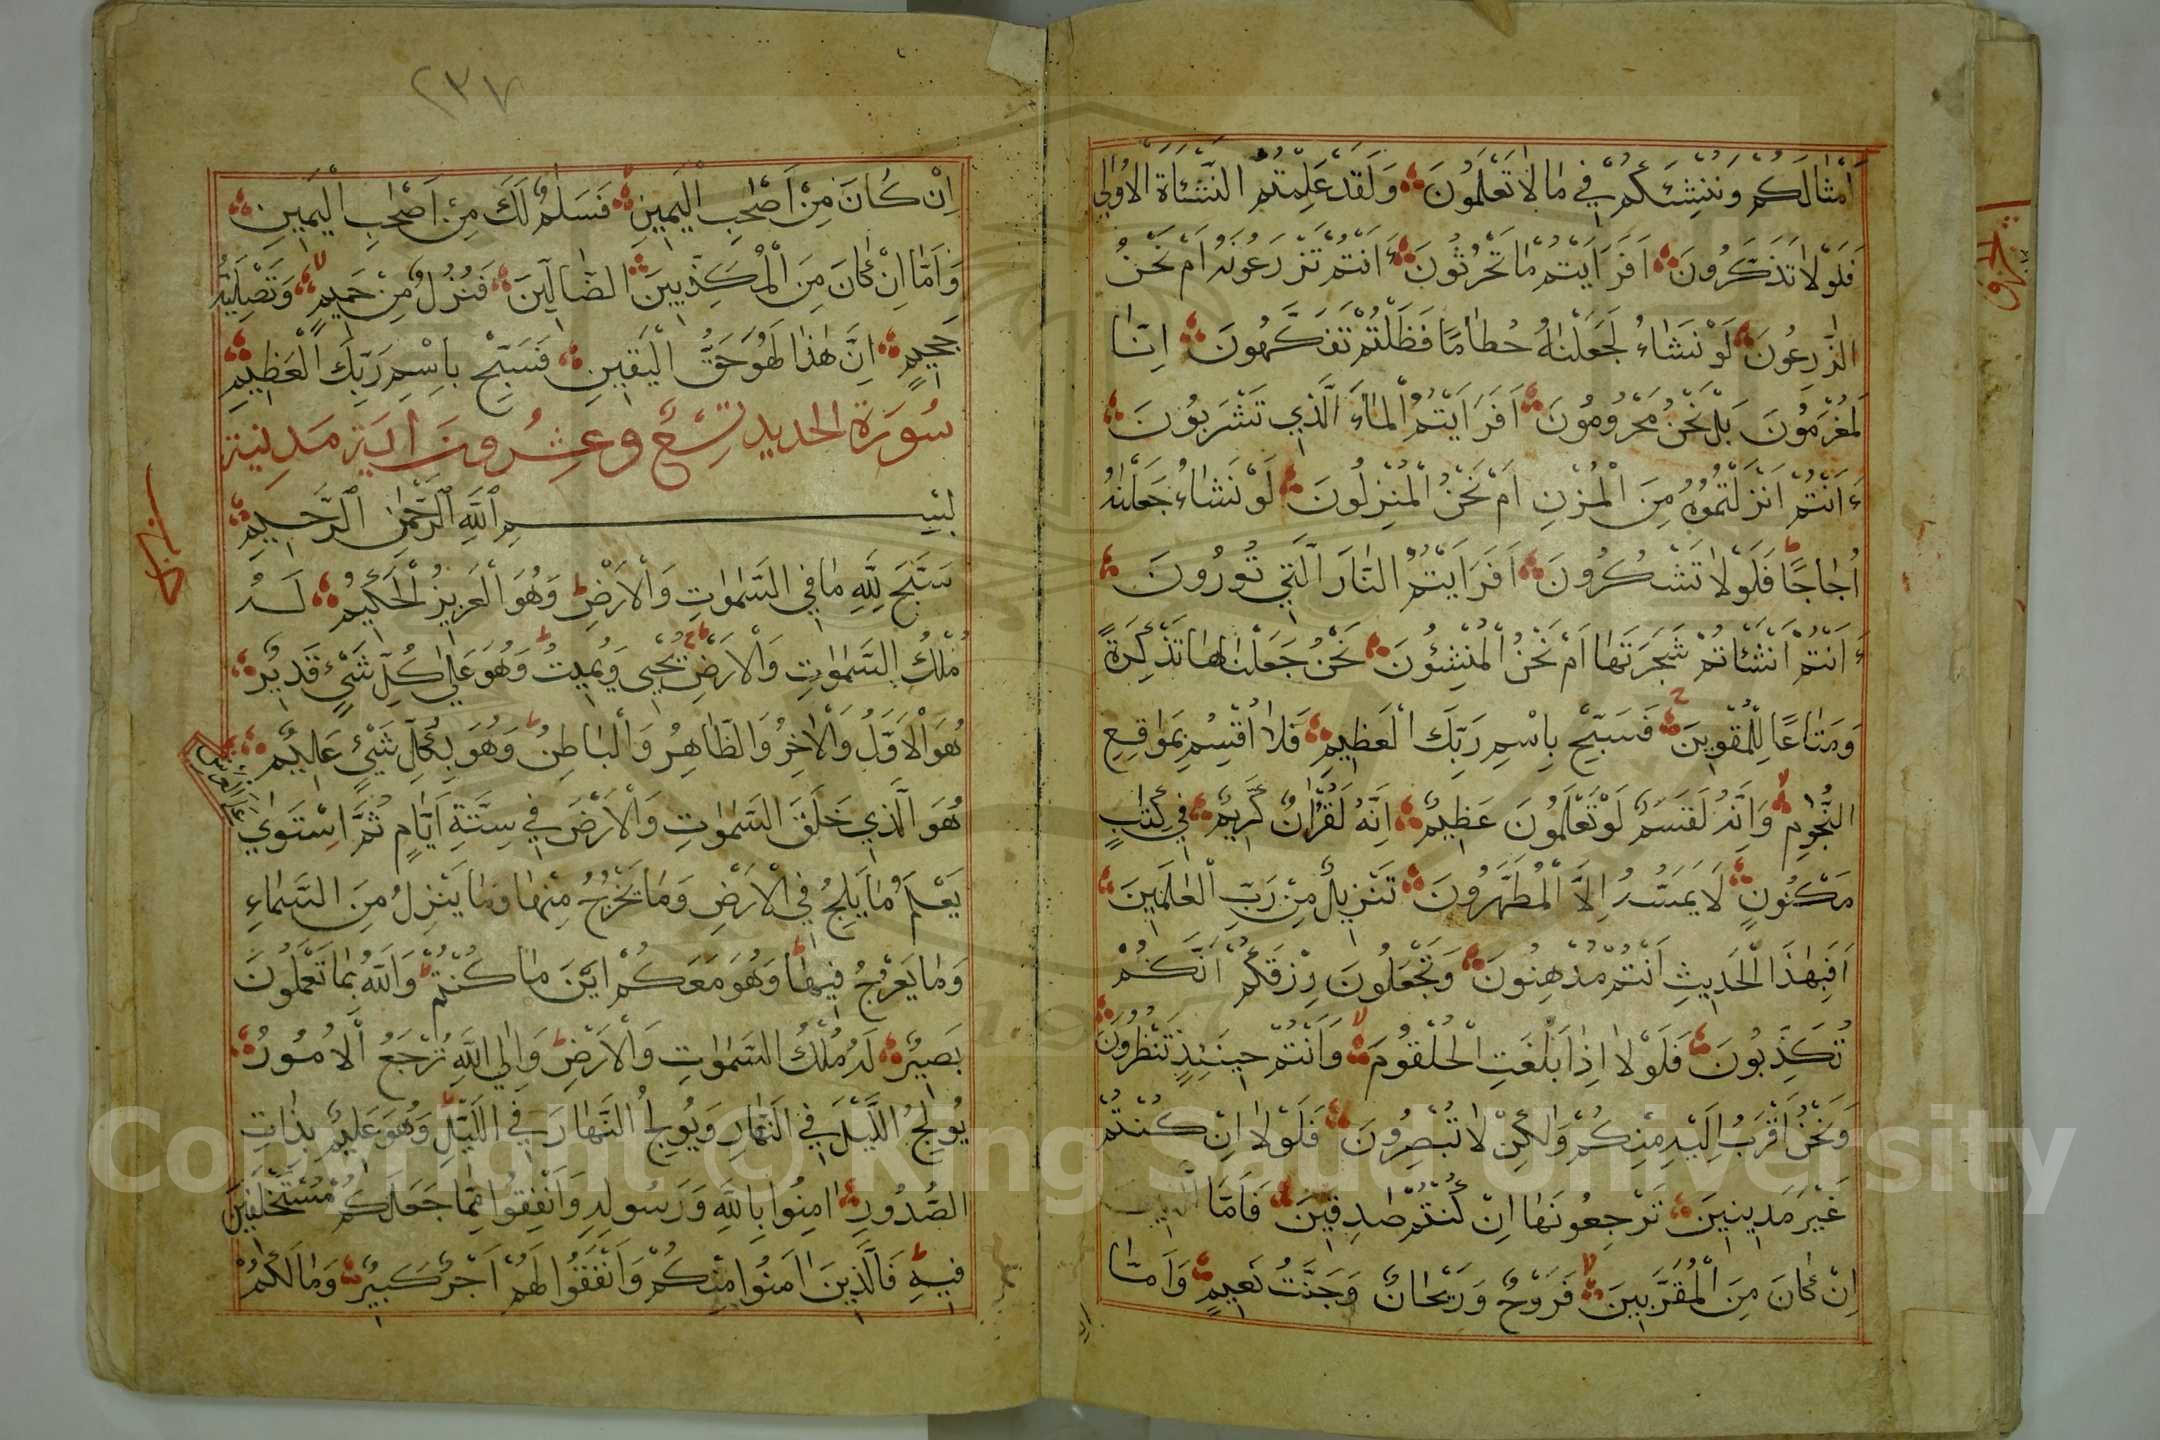 اَمْثَالَكُمْ وَنُنْشِئَكُمْ فِي مَا لَا تَعْلَمُونَ وَلَقَدْ عَلِمْتُمُ النَّشْئَاةَ الْاُولٰي
فَلَوْلَا تَذَكَّرُونَ اَفَرَاَيْتُمْ مَا تَحْرُثُونَ ءَاَنْتُمْ تَزْرَعُونَهُ اَمْ نَحْنُ
الزَّارِعُونَ لَوْ نَشَاءُ لَجَعَلْنَاهُ حُطَامًا فَظَلْتُمْ تَفَكَّهُونَ اِنَّا
لَمُغْرَمُونَ بَلْ نَحْنُ مَحْرُومُونَ اَفَرَاَيْتُمُ الْمَاءَ الَّذِي تَشْرَبُونَ
ءَاَنْتُمْ اَنْزَلْتُمُوهُ مِنَ الْمُزْنِ اَمْ نَحْنُ الْمُنْزِلُونَ لَوْ نَشَاءُ جَعَلْنَاهُ
اُجَاجًا فَلَوْلَا تَشْكُرُونَ اَفَرَاَيْتُمُ النَّارَ الَّتِي تُورُونَ
ءَاَنْتُمْ اَنْشَئْاتُمْ شَجَرَتَهَا اَمْ نَحْنُ الْمُنْشِؤُنَ نَحْنُ جَعَلْنَاهَا تَذْكِرَةً
وَمَتَاعًا لِلْمُقْوِينَ فَسَبِّحْ بِاسْمِ رَبِّكَ الْعَظِيمِ فَلَا اُقْسِمُ بِمَوَاقِعِ
النُّجُومِ وَاِنَّهُ لَقَسَمٌ لَوْ تَعْلَمُونَ عَظِيمٌ اِنَّهُ لَقُرْاٰنٌ كَرِيمٌ فِي كِتَابٍ
مَكْنُونٍ لَا يَمَسُّهُ اِلَّا الْمُطَهَّرُونَ تَنْزِيلٌ مِنْ رَبِّ الْعَالَمِينَ
اَفَبِهٰذَا الْحَدِيثِ اَنْتُمْ مُدْهِنُونَ وَتَجْعَلُونَ رِزْقَكُمْ اَنَّكُمْ
تُكَذِّبُونَ فَلَوْلَا اِذَا بَلَغَتِ الْحُلْقُومَ وَاَنْتُمْ حِينَئِذٍ تَنْظُرُونَ
وَنَحْنُ اَقْرَبُ اِلَيْهِ مِنْكُمْ وَلٰكِنْ لَا تُبْصِرُونَ فَلَوْلَا اِنْ كُنْتُمْ
غَيْرَ مَدِينِينَ تَرْجِعُونَهَا اِنْ كُنْتُمْ صَادِقِينَ فَاَمَّا
اِنْ كَانَ مِنَ الْمُقَرَّبِينَ فَرَوْحٌ وَرَيْحَانٌ وَجَنَّتُ نَعِيمٍ وَاَمَّا
٢٣٧
اِنْ كَانَ مِنْ اَصْحَابِ الْيَمِينِ فَسَلَامٌ لَكَ مِنْ اَصْحَابِ الْيَمِينِ
وَاَمَّا اِنْ كَانَ مِنَ الْمُكَذِّبِينَ الضَّالِّينَ فَنُزُلٌ مِنْ حَمِيمٍ وَتَصْلِيَةُ
جَحِيمٍ اِنَّ هٰذَا لَهُوَ حَقُّ الْيَقِينِ فَسَبِّحْ بِاسْمِ رَبِّكَ الْعَظِيمِ
سُورَة الحديد تِسْعٌ وعِشْرُونَ اٰيَة مَدنِية
بِسْمِ اللّٰهِ الرَّحْمٰنِ الرَّحِيمِ
سَبَّحَ لِلّٰهِ مَا فِي السَّمٰوَاتِ وَالْاَرْضِ وَهُوَ الْعَزِيزُ الْحَكِيمُ لَهُ
مُلْكُ السَّمٰوَاتِ وَالْاَرْضِ يُحْيِي وَيُمِيتُ وَهُوَ عَلٰي كُلِّ شَيْءٍ قَدِيرٌ
هُوَ الْاَوَّلُ وَالْاٰخِرُ وَالظَّاهِرُ وَالْبَاطِنُ وَهُوَ بِكُلِّ شَيْءٍ عَلِيمٌ
هُوَ الَّذِي خَلَقَ السَّمٰوَاتِ وَالْاَرْضَ فِي سِتَّةِ اَيَّامٍ ثُمَّ اسْتَوٰي
عَلَي الْعَرْشِ
يَعْلَمُ مَا يَلِجُ فِي الْاَرْضِ وَمَا يَخْرُجُ مِنْهَا وَمَا يَنْزِلُ مِنَ السَّمَاءِ
وَمَا يَعْرُجُ فِيهَا وَهُوَ مَعَكُمْ اَيْنَ مَا كُنْتُمْ وَاللّٰهُ بِمَا تَعْمَلُونَ
بَصِيرٌ لَهُ مُلْكُ السَّمٰوَاتِ وَالْاَرْضِ وَاِلَي اللّٰهِ تُرْجَعُ الْاُمُورُ
يُولِجُ اللَّيْلَ فِي النَّهَارِ وَيُولِجُ النَّهَارَ فِي اللَّيْلِ وَهُوَ عَلِيمٌ بِذَاتِ
الصُّدُورِ اٰمِنُوا بِاللّٰهِ وَرَسُولِهِ وَاَنْفِقُوا مِمَّا جَعَلَكُمْ مُسْتَخْلَفِينَ
فِيهِ فَالَّذِينَ اٰمَنُوا مِنْكُمْ وَاَنْفَقُوا لَهُمْ اَجْرٌ كَبِيرٌ وَمَا لَكُمْ
Copyright © King Saud University